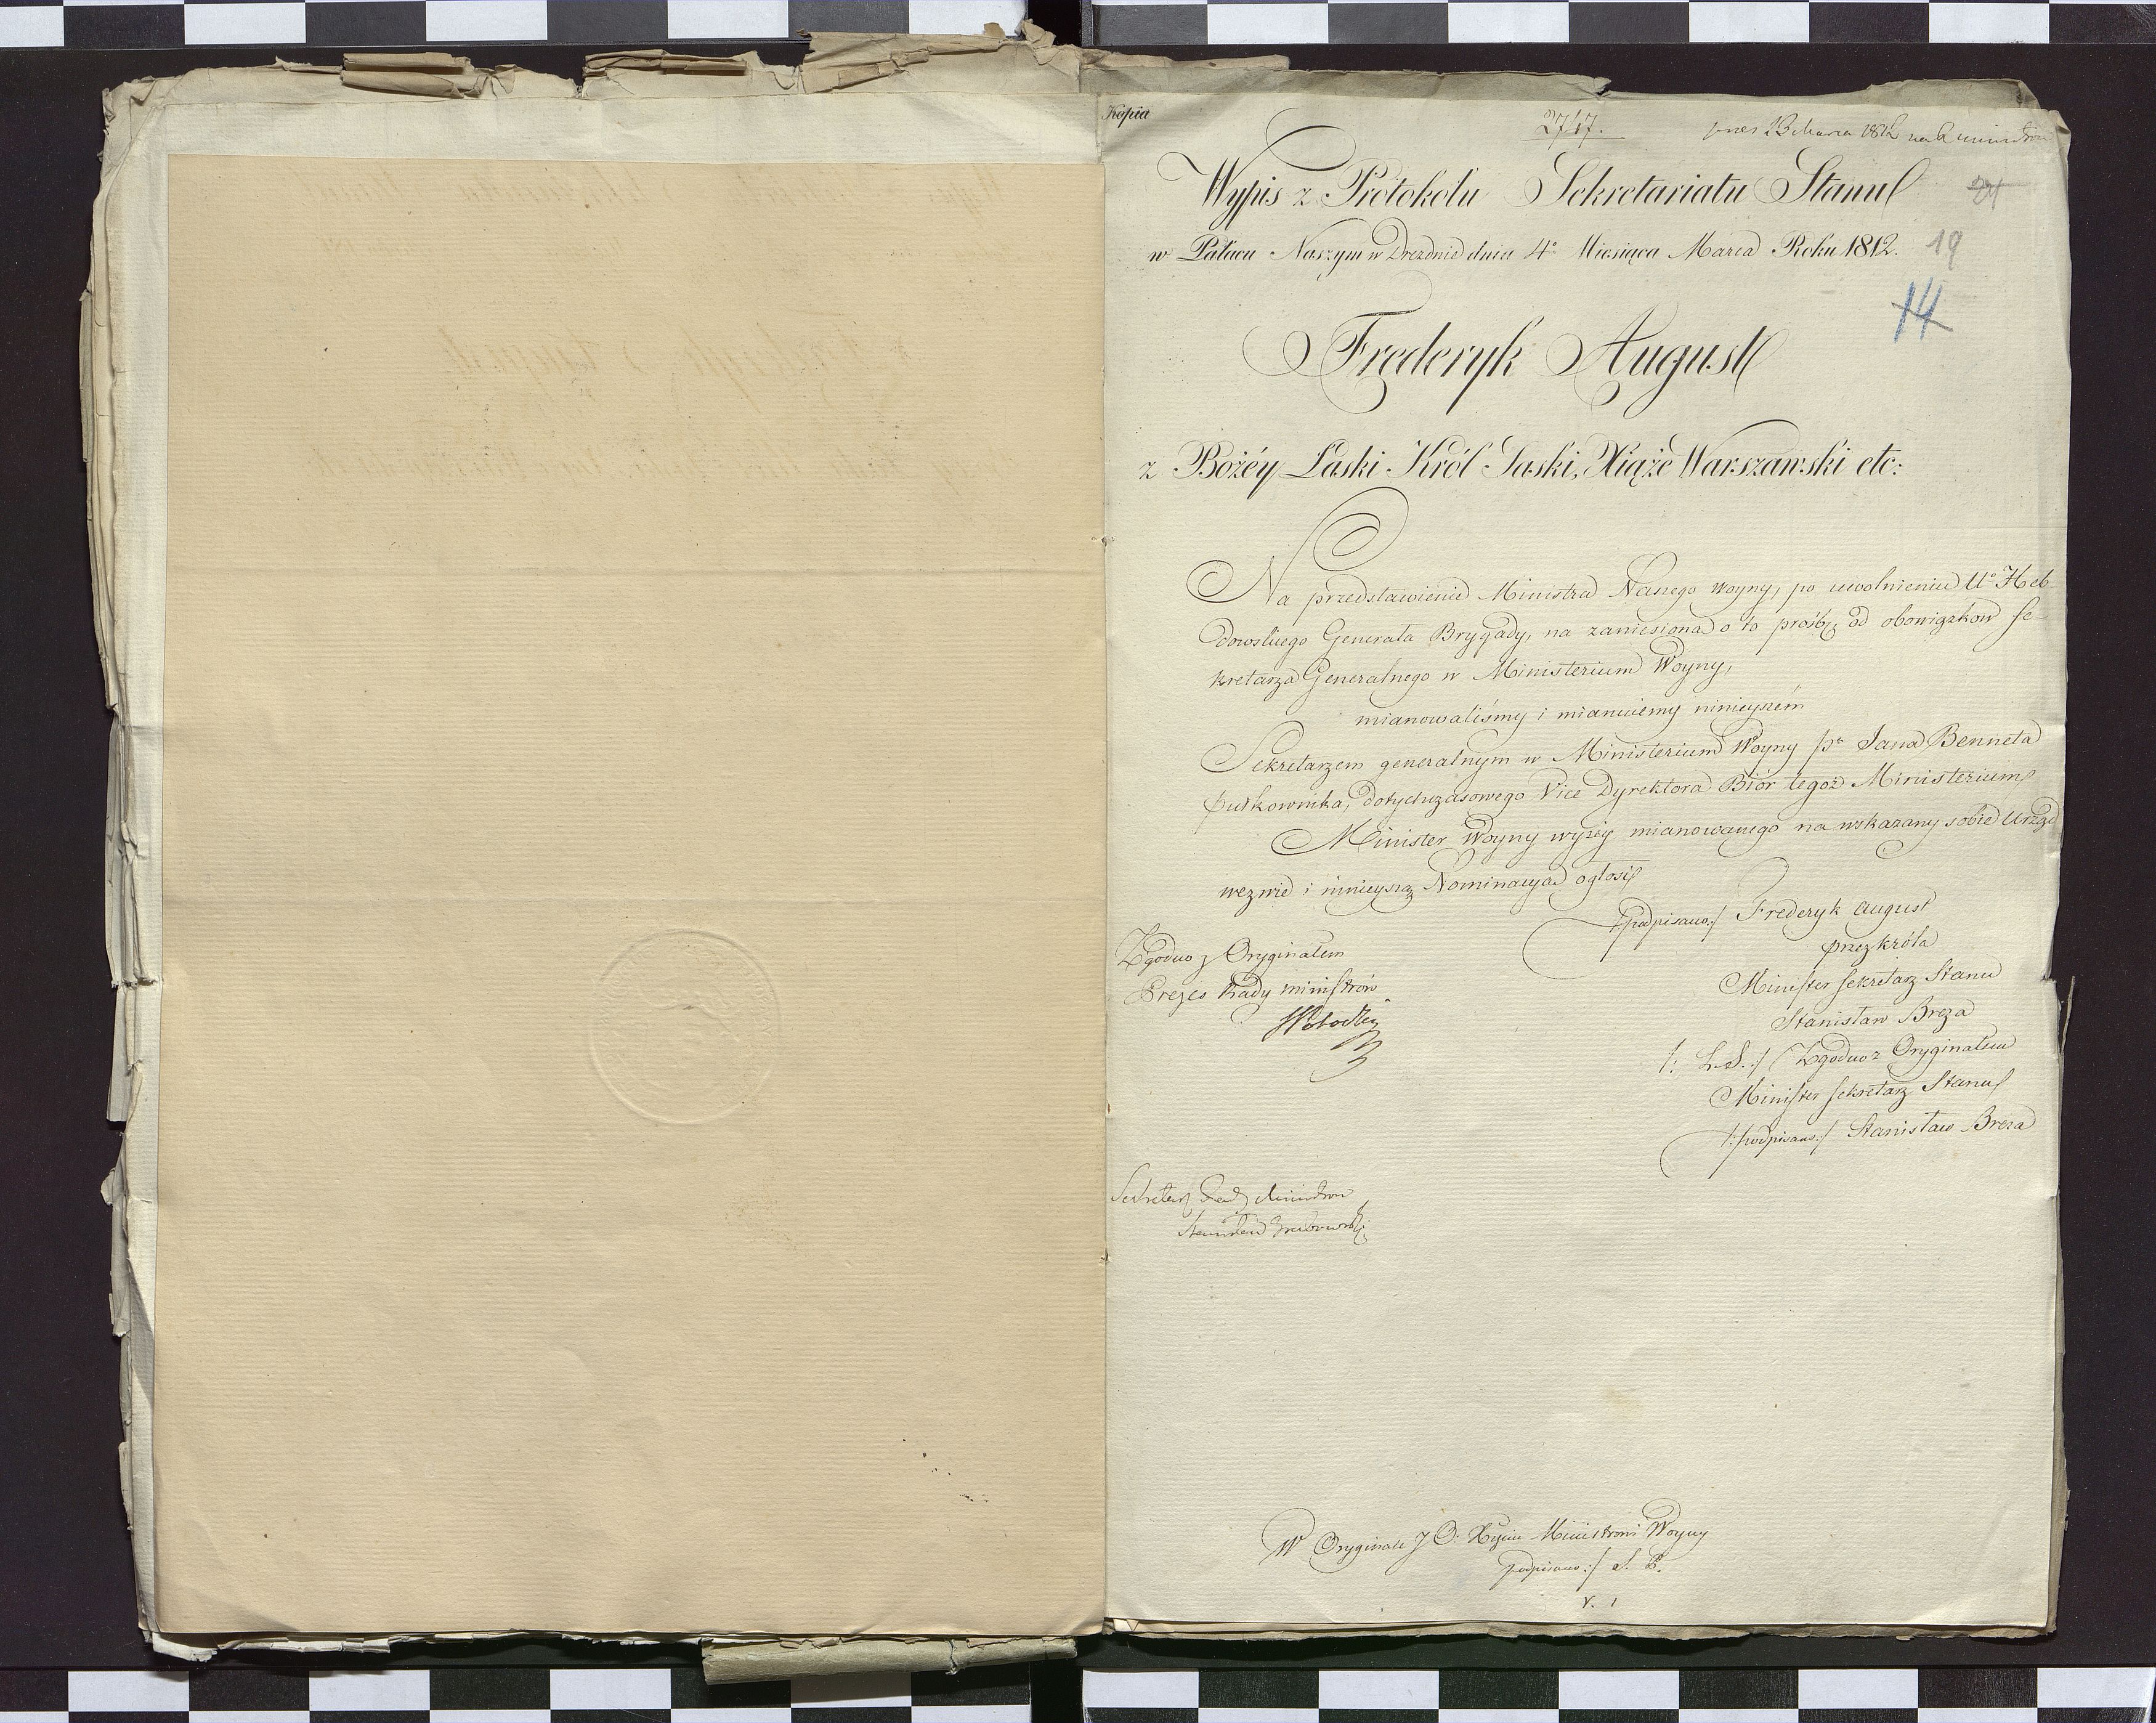 Kopia
2747.
pres 13 Marca 1812 na R ministrów
19
14
Wypis z Protokołu Sekretariatu Stanu
w Pałacu Naszym w Dreznie dnia 4º Miesiąca Marca Roku 1812.
Frederyk August
z Bożéy Łaski Król Saski, Xiąże Warszawski etc:
Na przedstawienie Ministra Naszego Woyny, po uwolnieniu Uº Heb
dowskiego Generała Brygady, na zaniesioną o to prośbę od obowiązkow Se
kretarza Generalnego w Ministerium Woyny,
mianowaliśmy i mianuiemy ninieyszém
Sekretarzem generalnym w Ministerium Woyny Jana Benneta
Pułkownika, dotychczasowego Vice Dyrektora Biór tegoż Ministerium
Minister Woyny wyżéy mianowanego na wskazany sobie Urząd
wezwie i ninieyszą Nominacyą ogłosi
/:podpisano:/ Frederyk August
przez króla
Minister Sekretarz Stanu
Stanisław Breza
/: L.S.:/ Zgodno z Oryginałem
Minister Sekretarz Stanu
/:podpisano:/ Stanisław Breza
Zgodno z Oryginałem
Prezes Rady ministrów
SPotocki
Sekretarz Rady Ministrow
Stanisław Grabowski
W Oryginale J O. Xięciu Ministrowi Woyny
podpisano:/ S. B.